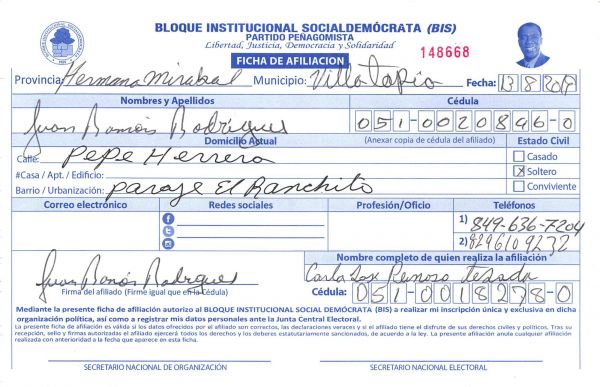 BLOQUE INSTITUCIONAL SOCIALDEMÓCRATA (BIS)
PARTIDO PEÑAGOMISTA
Libertad, Justicia, Democracia y Solidaridad
FICHA DE AFILIACION
148668
Provincia Hermana Mirabal Municipio: Villa Tapia Fecha: 13 8 2017
Nombres y Apellidos Cédula
Juan Ramón Rodríguez 051-0020846-0
Domicilio Actual (Anexar copia de cédula del afiliado) Estado Civil
Calle: Pepe Herrera
Casado
#Casa / Apt. / Edificio:
X Soltero
Barrio / Urbanización: paraje El Ranchito
Conviviente
Correo electrónico Redes sociales Profesión/Oficio Teléfonos
1) 849-636-7204
2) 8296109232
Nombre completo de quien realiza la afiliación
Juan Ramón Rodríguez Carlos José Reinoso Tejada
Firma del afiliado (Firme igual que en la Cédula) Cédula: 051-0018278-0
Mediante la presente ficha de afiliación autorizo al BLOQUE INSTITUCIONAL SOCIAL DEMÓCRATA (BIS) a realizar mi inscripción única y exclusiva en dicha
organización política, así como a registrar mis datos personales ante la Junta Central Electoral.
La presente ficha de afiliación es válida si los datos ofrecidos por el afiliado son correctos, las declaraciones veraces y si el afiliado tiene el disfrute de sus derechos civiles y políticos. Tras su
recepción, sello y firmas autorizadas el afiliado ejercerá todos los derechos y los deberes estatutariamente sancionados, de acuerdo a la ley. La presente afiliación anula cualquier afiliación
realizada con anterioridad a la fecha que aparece en esta ficha.
SECRETARIO NACIONAL DE ORGANIZACIÓN SECRETARIO NACIONAL ELECTORAL